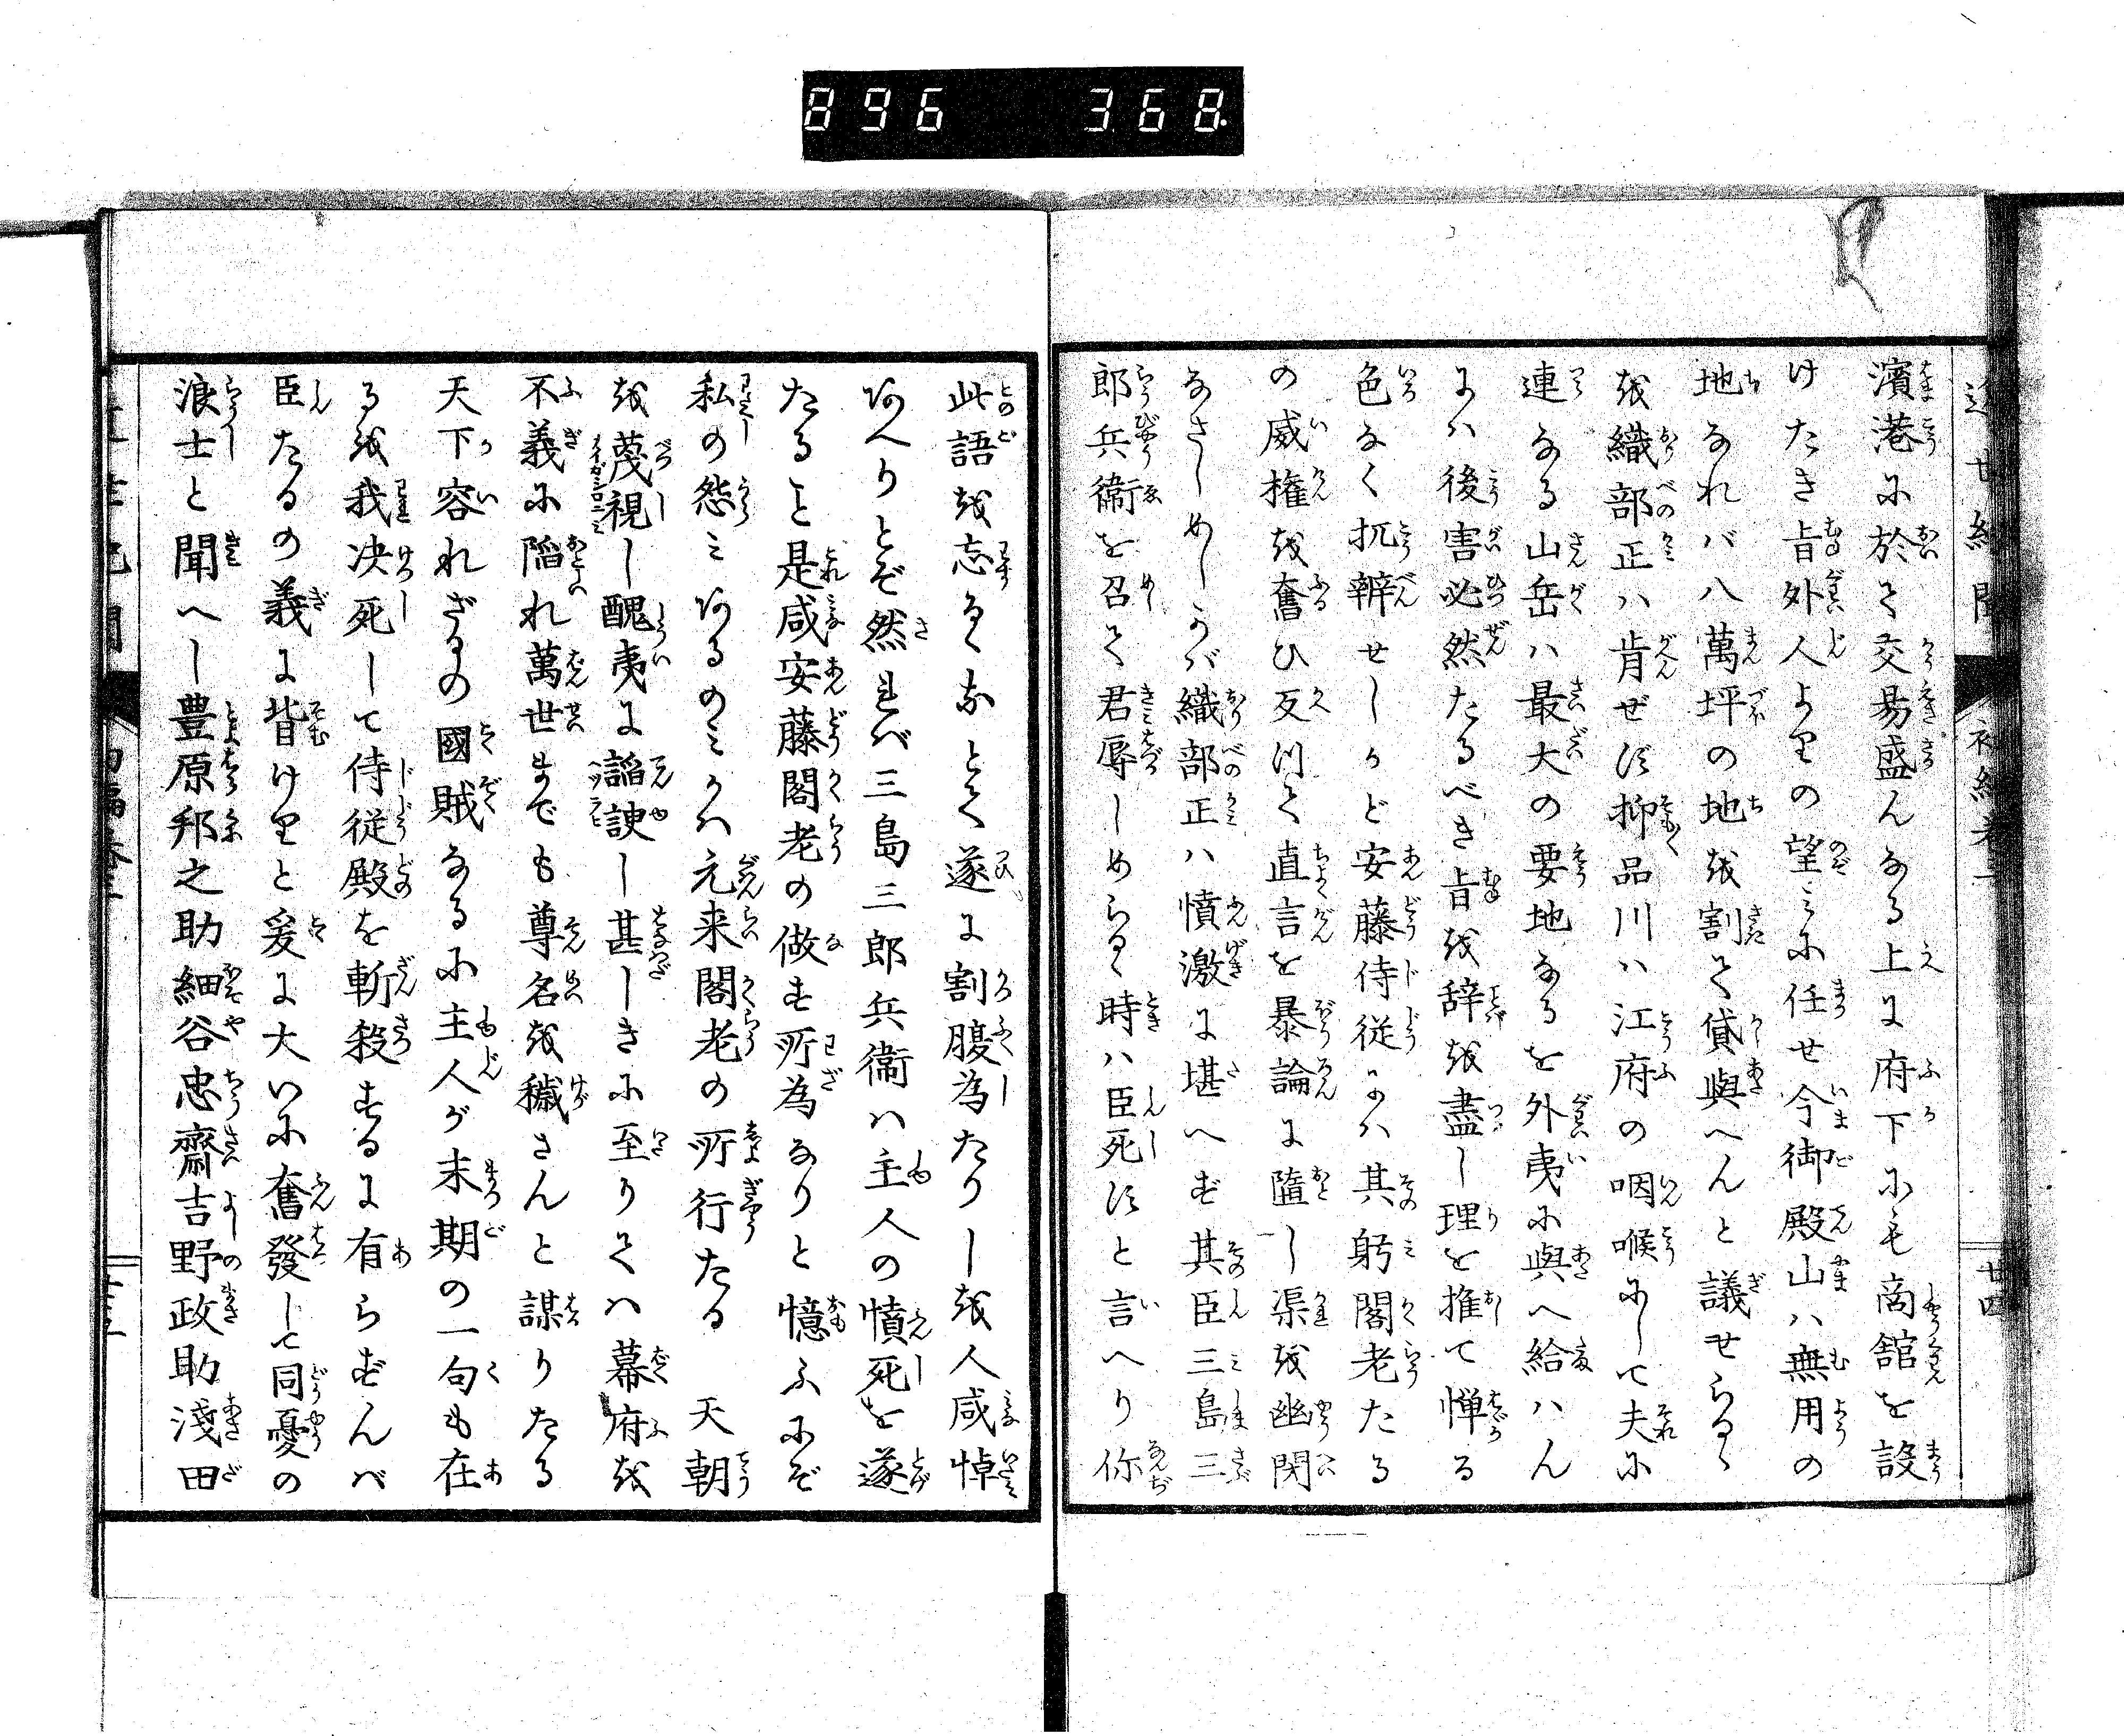 896 368
近世紀聞 初編巻一 廿四
濱港に於て交易盛んなる上に府下にも商舘を設
けたき旨外人よりの望みに任せ今御殿山ハ無用の
地なれバ八萬坪の地を割て貸與へんと議せらるゝ
を織部正ハ肯ぜず抑品川ハ江府の咽喉にして夫に
連なる山岳ハ最大の要地なるを外夷に與へ給ハん
にハ後害必然たるべき旨を辞を盡し理を推て憚る
色なく抗辨せしかど安藤侍従にハ其躬閣老たる
の威權を奮ひ反つて直言を暴論に墮し渠を幽閉
なさしめしかば織部正ハ憤激に堪へず其臣三島三
郎兵衞を召て君辱しめらるゝ時ハ臣死すと言へり你
此語を忘るゝなとて遂に割腹為たりしを人咸悼
みあへりとぞ然れバ三島三郎兵衞ハ主人の憤死を遂
たること是咸安藤閣老の做す所為なりと憶ふにぞ
私の怨みあるのみかハ元来閣老の所行たる 天朝
を蔑視し醜夷に謟諛し甚しきに至りてハ幕府を
不義に陥れ萬世までも尊名を穢さんと謀りたる
天下容れざるの國賊なるに主人が末期の一句も在
るを我决死して侍従殿を斬殺するに有らずんバ
臣たるの義に背けりと爰に大いに奮發して同憂の
浪士と聞へし豊原邦之助細谷忠齋吉野政助淺田